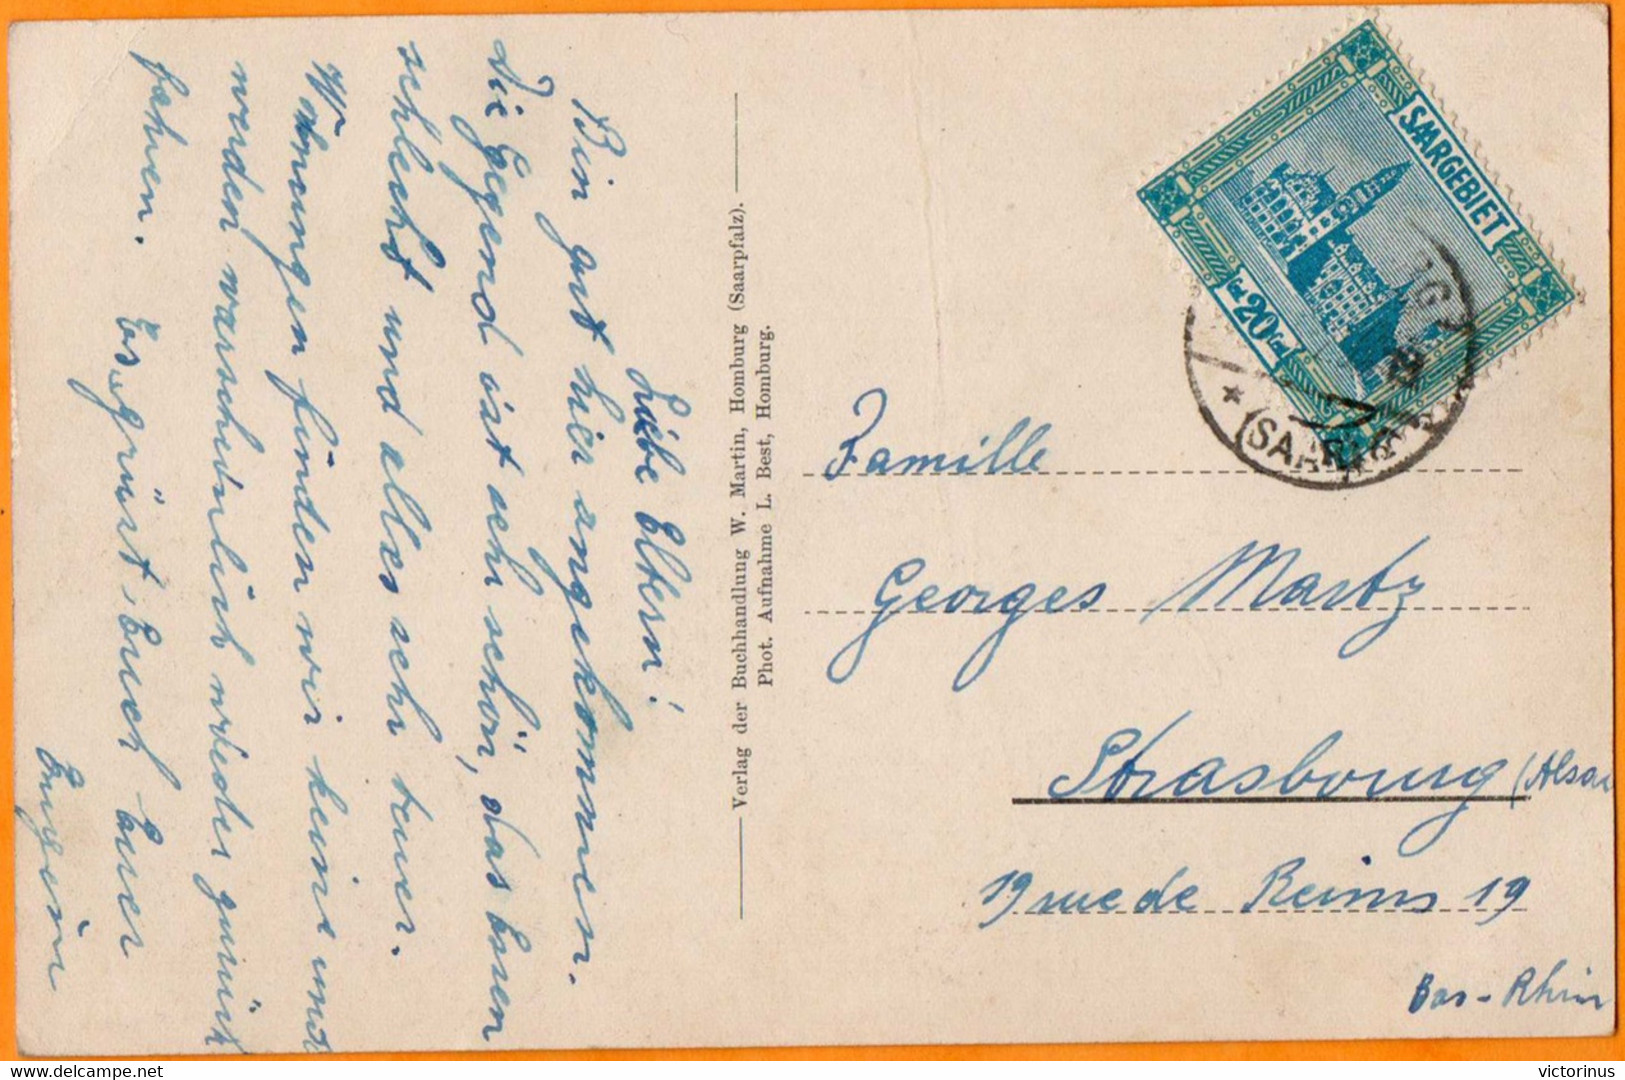 Liebe Eltern!
Bin gut hier angekommen.
Die Gegend ist sehr schön, das Essen
schlecht und alles sehr teuer.
Wohnungen finden wir keine und
werden warscheinlich wieder zurück
fahren. Es grüsst Euch Euer
Eugen
Verlag der Buchhandlung W. Martin, Homburg (Saarpfalz).
Phot. Aufnahme L. Best, Homburg.
SAARGEBIET
20
(SAAR
Famille
Georges Martz
Strasbourg (Alsac
19 rue de Reims 19
Bas-Rhin
© delcampe.net
victorinus